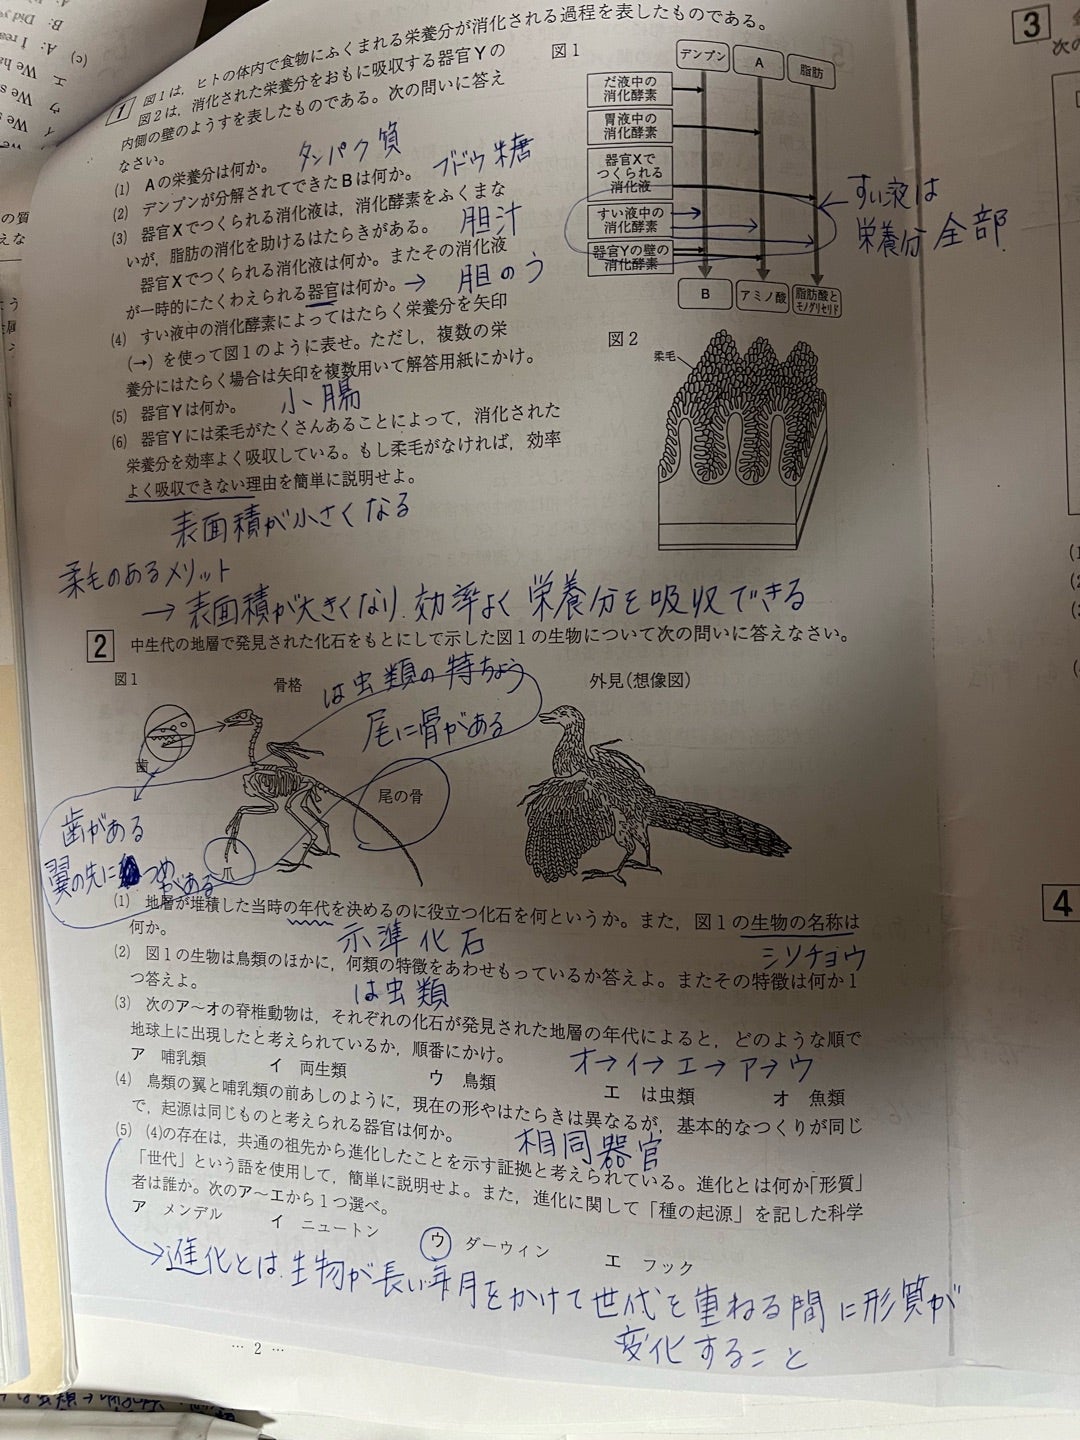 1 図1は，ヒトの体内で食物にふくまれる栄養分が消化される過程を表したものである。
図2は，消化された栄養分をおもに吸収する器官Yの
内側の壁のようすを表したものである。次の問いに答え
なさい。
(1) Aの栄養分は何か。 タンパク質
(2) デンプンが分解されてできたBは何か。 ブドウ糖
(3) 器官Xでつくられる消化液は，消化酵素をふくまな
いが，脂肪の消化を助けるはたらきがある。 胆汁
器官Xでつくられる消化液は何か。またその消化液
が一時的にたくわえられる器官は何か。→ 胆のう
(4) すい液中の消化酵素によってはたらく栄養分を矢印
(→)を使って図1のように表せ。ただし，複数の栄
養分にはたらく場合は矢印を複数用いて解答用紙にかけ。
(5) 器官Yは何か。 小腸
(6) 器官Yには柔毛がたくさんあることによって，消化された
栄養分を効率よく吸収している。もし柔毛がなければ，効率
よく吸収できない理由を簡単に説明せよ。
表面積が小さくなる
柔毛のあるメリット
→ 表面積が大きくなり，効率よく栄養分を吸収できる
図1
デンプン
A
脂肪
だ液中の
消化酵素
胃液中の
消化酵素
器官Xで
つくられる
消化液
すい液中の
消化酵素
器官Yの壁の
消化酵素
すい液は
栄養分全部
B
アミノ酸
脂肪酸と
モノグリセリド
図2
柔毛
2 中生代の地層で発見された化石をもとにして示した図1の生物について次の問いに答えなさい。
図1
骨格
外見(想像図)
は虫類の特ちょう
尾に骨がある
歯
尾の骨
爪
歯がある
翼の先につめ
がある
(1) 地層が堆積した当時の年代を決めるのに役立つ化石を何というか。また，図1の生物の名称は
何か。
示準化石
シソチョウ
(2) 図1の生物は鳥類のほかに，何類の特徴をあわせもっているか答えよ。またその特徴は何か1
つ答えよ。
は虫類
(3) 次のア～オの脊椎動物は，それぞれの化石が発見された地層の年代によると，どのような順で
地球上に出現したと考えられているか，順番にかけ。
オ→イ→エ→ア→ウ
ア 哺乳類 イ 両生類 ウ 鳥類 エ は虫類 オ 魚類
(4) 鳥類の翼と哺乳類の前あしのように，現在の形やはたらきは異なるが，基本的なつくりが同じ
で，起源は同じものと考えられる器官は何か。
相同器官
(5) (4)の存在は，共通の祖先から進化したことを示す証拠と考えられている。進化とは何か「形質」
「世代」という語を使用して，簡単に説明せよ。また，進化に関して「種の起源」を記した科学
者は誰か。次のア～エから1つ選べ。
ア メンデル イ ニュートン ウ ダーウィン エ フック
→進化とは，生物が長い年月をかけて世代を重ねる間に形質が
変化すること
… 2 …
3
4